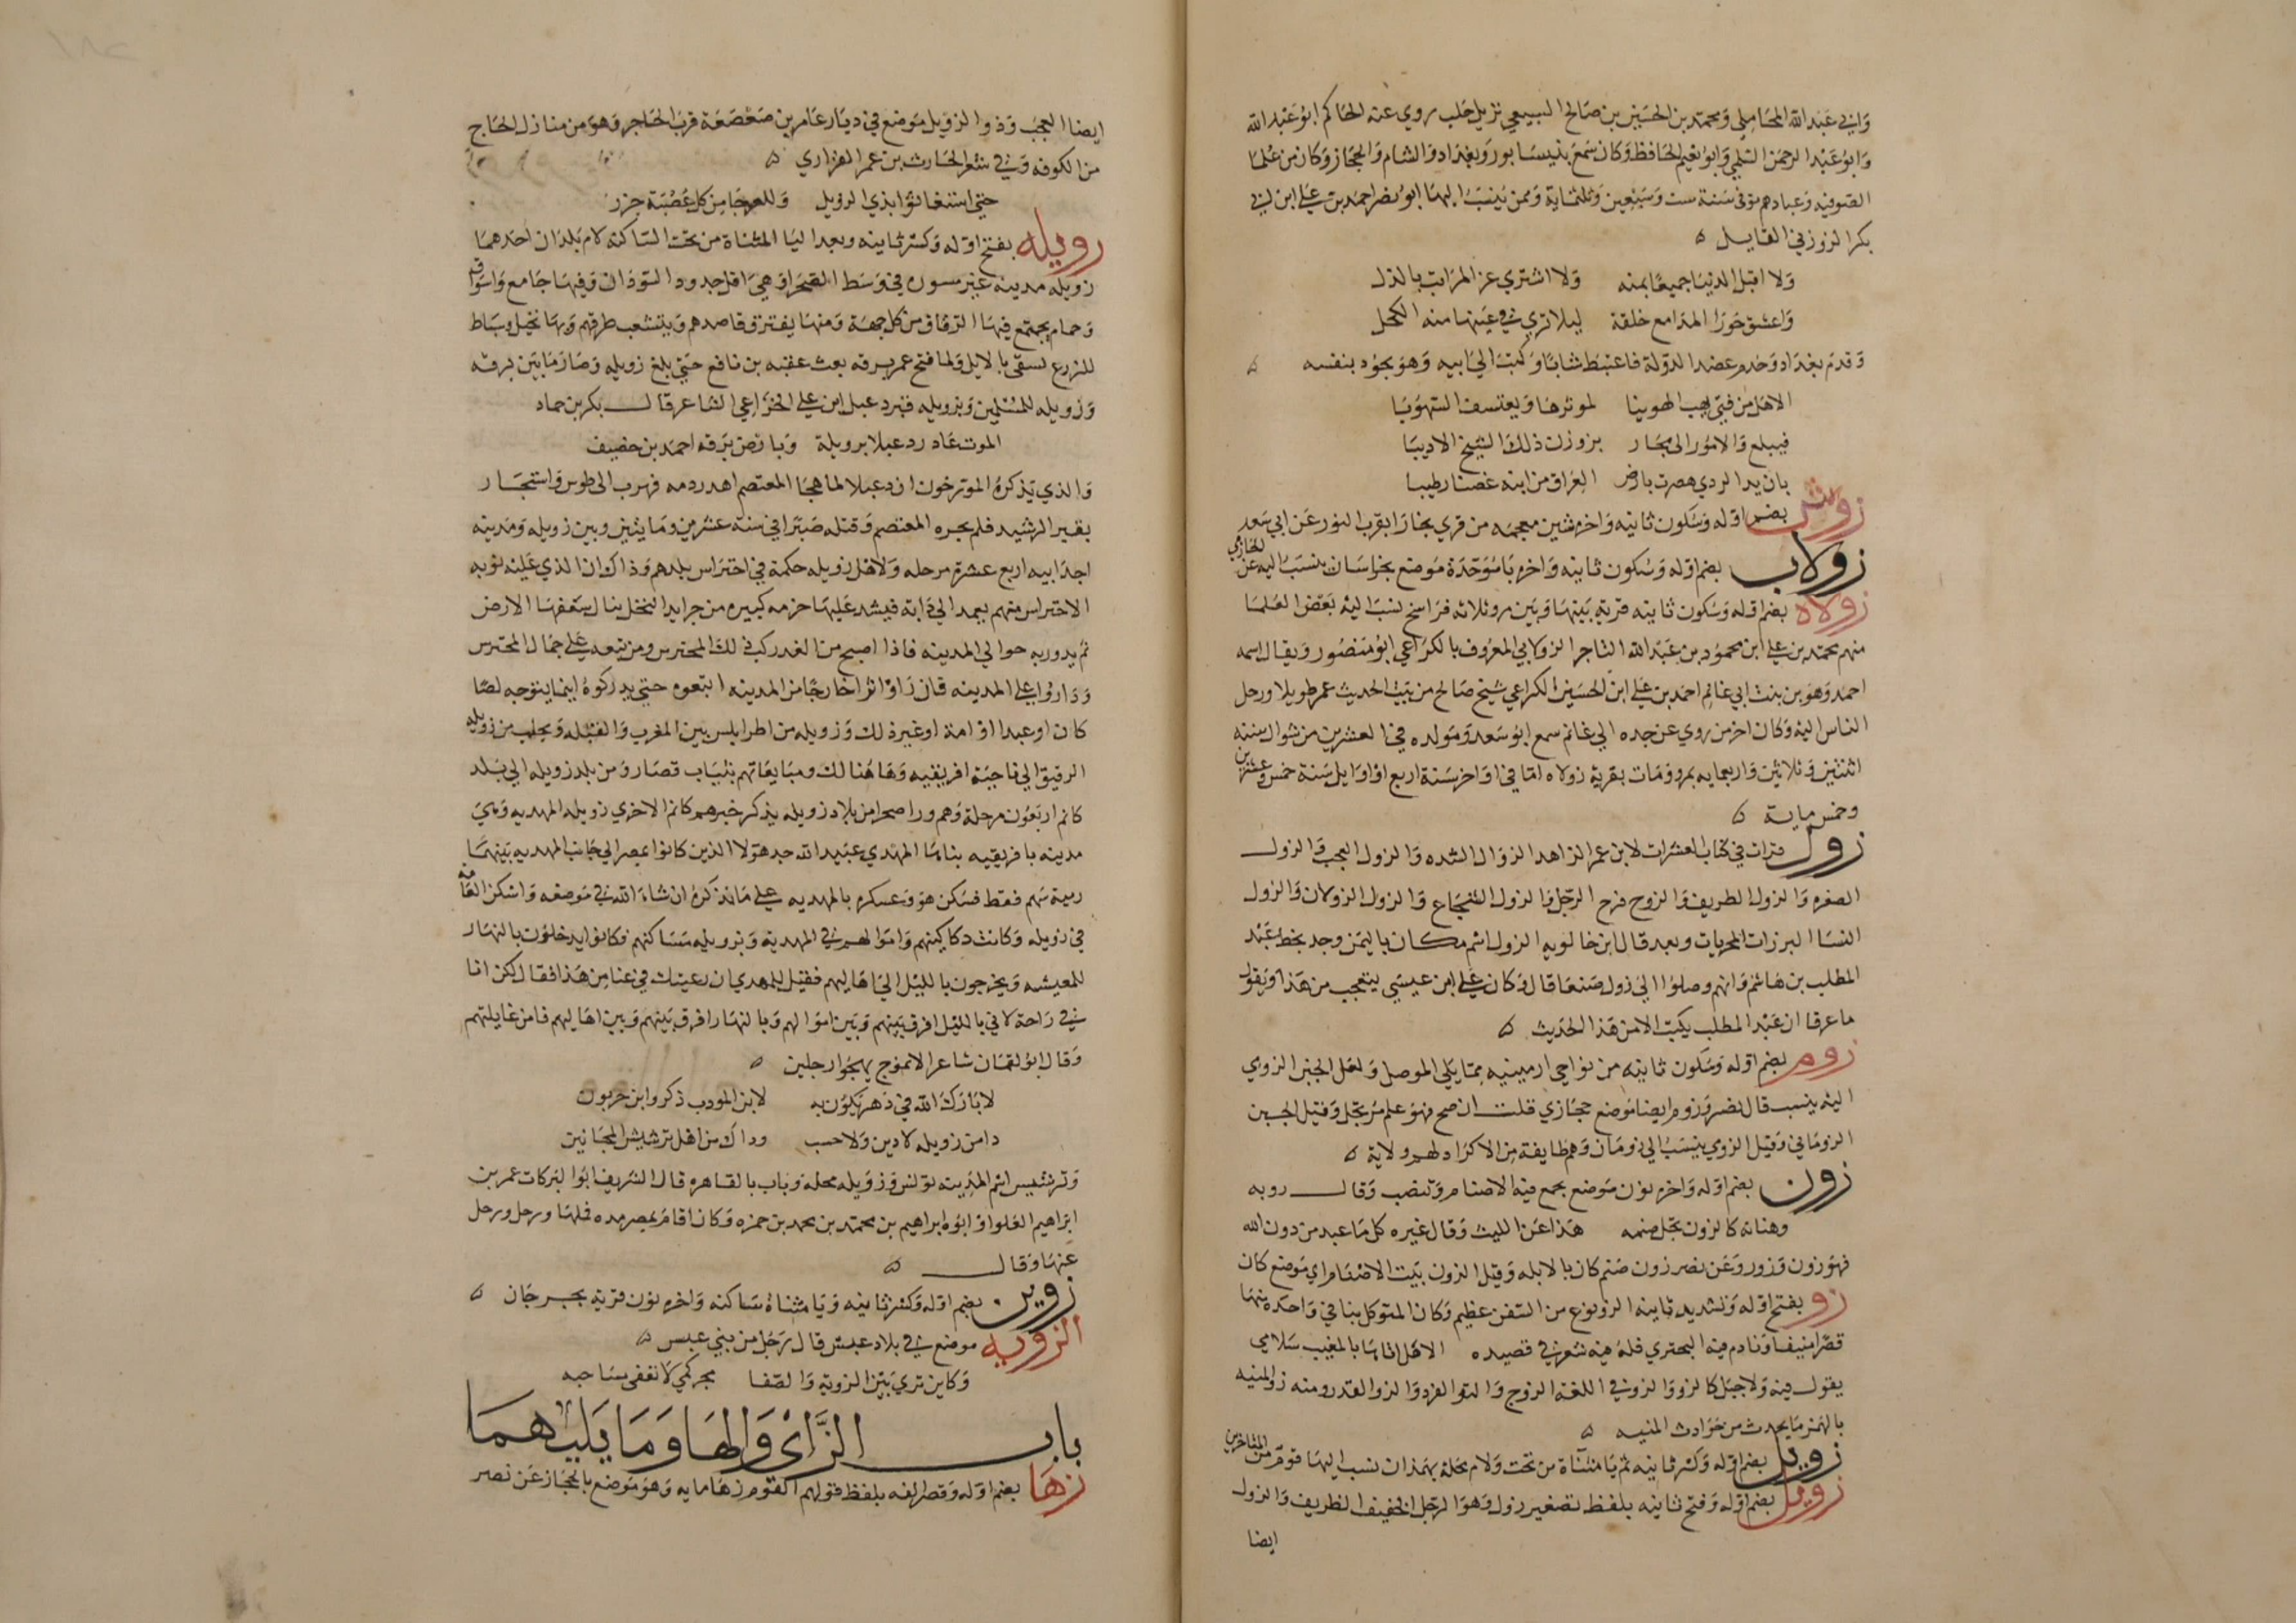 وابي عبد الله المحاملي ومحمد بن الحسين بن صالح السبيعي نزيل حلب روي عنه الحاكم ابو عبد الله
وابو عبد الرحمن السلمي وابو نعيم الحافظ وكان سمع بنيسابور وبغداد والشام والحجاز وكان من علما
الصوفيه وعبادهم توفى سنة ست وسبعين وثلثماية وممن ينسب اليها ابو نصر احمد بن علي ابن ابي
بكر الزوزني القايل
ولا اقبل الدنيا جميعا بمنه ولا اشتري عز المراتب بالذل
واعشق حورا المدامع خلقة ليلا تري في عينها منه الكحل
وقدم بغداد وخدم عضد الدولة فاعتبط شابا وكتب الي ابيه وهو يجود بنفسه
الاهل من فتي يهب الهوينا لموثرها ويعتسف السهوبا
فيبلغ والامور الى مجار بزوزن ذلك الشيخ الاديبا
بان يد الردي هصرت بارض العراق من ابنه غصنا رطيبا
زوش بضم اوله وسكون ثانيه واخره شين معجمه من قري بخارا بقرب النور عن ابي سعد
زولاب بضم اوله وسكون ثانيه واخره با موحدة موضع بخراسان ينسب اليه عن الحازمي
زولاه بضم اوله وسكون ثانيه قرية بينها وبين مرو ثلاثه فراسخ نسب اليه بعض العلما
منهم محمد بن علي ابن محمود بن عبد الله التاجر الزولابي المعروف بالكراعي ابو منصور ويقال اسمه
احمد وهو بن بنت ابي غانم احمد بن علي ابن الحسين الكراعي شيخ صالح من بيت الحديث عمر طويلا ورحل
الناس اليه وكان اخر من روي عن جده ابي غانم سمع ابو سعد ومولده في العشرين من شوال سنة
اثنتين وثلاثين واربعمايه بمرو ومات بقرية زولاه اما في اواخر سنة اربع او اوايل سنة خمس وعشرين
وخمس ماية
زول قرات في كتاب العشرات لابن عمر الزاهد الزوال الشده والزول العجب والزول
الصقره والزول الظريف والزوج فرج الرجل والزول الشجاع والزول الزولان والزول
النسا البرزات المحربات وبعد قال ابن خالويه الزول اسم مكان باليمن وجد بخط عبد
المطلب بن هاشم وانهم وصلوا الي زول صنعا قال وكان علي ابن عيسي يتعجب من هذا ويقول
ما عرفا ان عبد المطلب يكتب الا من هذا الحديث
زوم بضم اوله وسكون ثانيه من نواحي ارمينيه مما يلي الموصل ولعل الجبن الزومي
اليه ينسب قال نصر وزوم ايضا موضع حجازي قلت ان صح فهو علم مرتجل وقيل الجبن
الزوماني وقيل الزومي ينسب الي زومان وهم طايفة من الاكراد لهم ولاية
زون بضم اوله واخره نون موضع يجمع فيه الاصنام وتنصب وقال روبه
وهنانه كالزون يجلى صنمه هذا عن الليث وقال غيره كل ما عبد من دون الله
فهو زون وزور وعن نصر زون صنم كان بالابله وقيل الزون بيت الاصنام اي موضع كان
زو بفتح اوله وتشديد ثانيه الزو نوع من السفن عظيم وكان المتوكل بنا في واحدة منها
قصرا منيفا ونادم فيه البحتري فله فيه شعر في قصيده الا هل اتاها بالمغيب سلامي
يقول فيه ولا جبل كالزو والزو في اللغة الزوج والتو الفرد والزو القدر ومنه زو المنيه
بالهمز ما يحدث من حوادث المنيه
زويل بضم اوله وكسر ثانيه ثم يا مثناة من تحت ولام محلة بهمذان نسب اليها قوم من المتاخرين
زويل بضم اوله وفتح ثانيه بلفظ تصغير زول وهو الرجل الخفيف الظريف والزول
ايضا
ايضا العجب وذو الزويل موضع في ديار عامر بن صعصعة قرب الحاجر وهو من منازل الحاج
من الكوفه وفي شعر الحارث بن عمر الفزاري
حتي استغاثوا بذي الزويل وللعرجا من كل عصبة جزر
زويله بفتح اوله وكسر ثانيه وبعد اليا المثناة من تحت الساكنه لام بلدان احدهما
زويله مدينه غير مسوره في وسط الصحرا وهي اول حدود السودان وفيها جامع واسواق
وحمام يجتمع فيها الرفاق من كل جهة ومنها يفترق قاصدهم ويتشعب طرقهم وبها نخيل وبساط
للزرع تسقى بالابل ولما فتح عمر برقه بعث عقبه بن نافع حتي بلغ زويله وصار ما بين برقه
وزويله للمسلمين وبزويله قبر دعبل ابن علي الخزاعي الشاعر قال بكر بن حماد
الموت غادر دعبلا بزويلة وبارض برقه احمد بن خضيف
والذي يذكره المورخون ان دعبلا لما هجا المعتصم اهدر دمه فهرب الى طوس واستجار
بقبر الرشيد فلم يجره المعتصم وقتله صبرا في سنة عشرين ومايتين وبين زويله ومدينه
اجدابيه اربع عشرة مرحله ولاهل زويله حكمة في احتراس بلدهم وذاك ان الذي عليه نوبه
الاحتراس منهم يعمد الي دابه فيشد عليها حزمه كبيره من جرايد النخل ينال سعفها الارض
ثم يدور به حوالي المدينه فاذا اصبح من الغد ركب ذلك المحترس ومن يتبعه علي جمال المحترس
وداروا علي المدينه فان راوا اثرا خارجا من المدينه اتبعوه حتي يدركوه اينما يتوجه لصا
كان او عبدا او امة او غير ذلك وزويله من اطرابلس بين المغرب والقبله ويجلب من زويله
الرقيق الي ناحية افريقيه وما هنالك ومبايعاتهم بثياب قصار ومن بلد زويله الي بلد
كانم اربعون مرحلة وهم ورا صحرا من بلاد زويله يذكر خبرهم كانم الاخري زويله المهديه وهي
مدينه بافريقيه بناها المهدي عبيد الله جد هولا الذين كانوا بمصر الي جانب المهديه بينهما
رمية سهم فقط فسكن هو وعسكره بالمهديه علي ما نذكره ان شاء الله في موضعه واسكن العامه
في زويله وكانت دكاكينهم واموالهم في المهديه وبزويله مساكنهم فكانوا يدخلون بالنهار
للمعيشه ويخرجون بالليل الي اهاليهم فقيل للمهدي ان رعيتك في عنا من هذا فقال لكن انا
في راحة لاني بالليل افرق بينهم وبين اموالهم وبالنهار افرق بينهم وبين اهاليهم فامن غايلتهم
وقال ابو لقمان شاعر الانموذج يهجوا رجلين
لا بارك الله في دهر يكون به لابن المودب ذكر وابن حربون
دا من زويله لا دين ولا حسب وداك من اهل ترشيش المجانين
وترشيس اسم المدينه تونس وزويله محله وباب بالقاهره قال الشريف ابو البركات عمر بن
ابراهيم العلوا وابوه ابراهيم بن محمد بن محمد بن حمزه وكان اقام بمصر مده فملها ورحل ورحل
عنها وقال
زوين بضم اوله وكسر ثانيه ويا مثناة ساكنه واخره نون قرية بجرجان
الزويه موضع في بلاد عبس قال رجل من بني عبس
وكاين تري بين الزوية والصفا مجر كمي لا تعفى مساحبه
باب الزاي والها وما يليهما
زها بضم اوله وقصر الفه بلفظ قولهم القوم زها مايه وهو موضع بالحجاز عن نصر